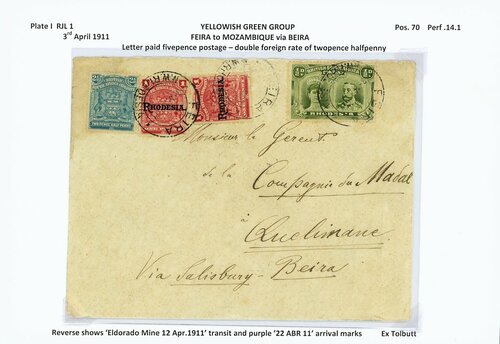 Plate I RJL 1
YELLOWISH GREEN GROUP
Pos. 70 Perf .14.1
3rd April 1911
FEIRA to MOZAMBIQUE via BEIRA
Letter paid fivepence postage – double foreign rate of twopence halfpenny
RHODESIA.
RHODESIA
RHODESIA
FEIRA
N.W. RHODESIA
Monsieur le Gerent
de la
Compagnie du Madal
à
Quelimane
Via Salisbury - Beira
Reverse shows 'Eldorado Mine 12 Apr.1911' transit and purple '22 ABR 11' arrival marks
Ex Tolbutt